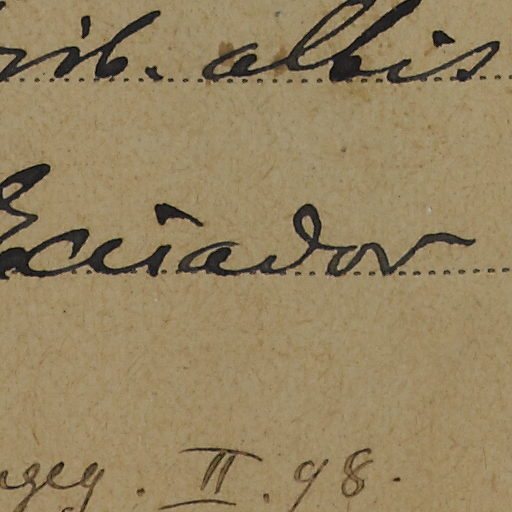 rib. albis
Ecuador
ngeg. II. 98.